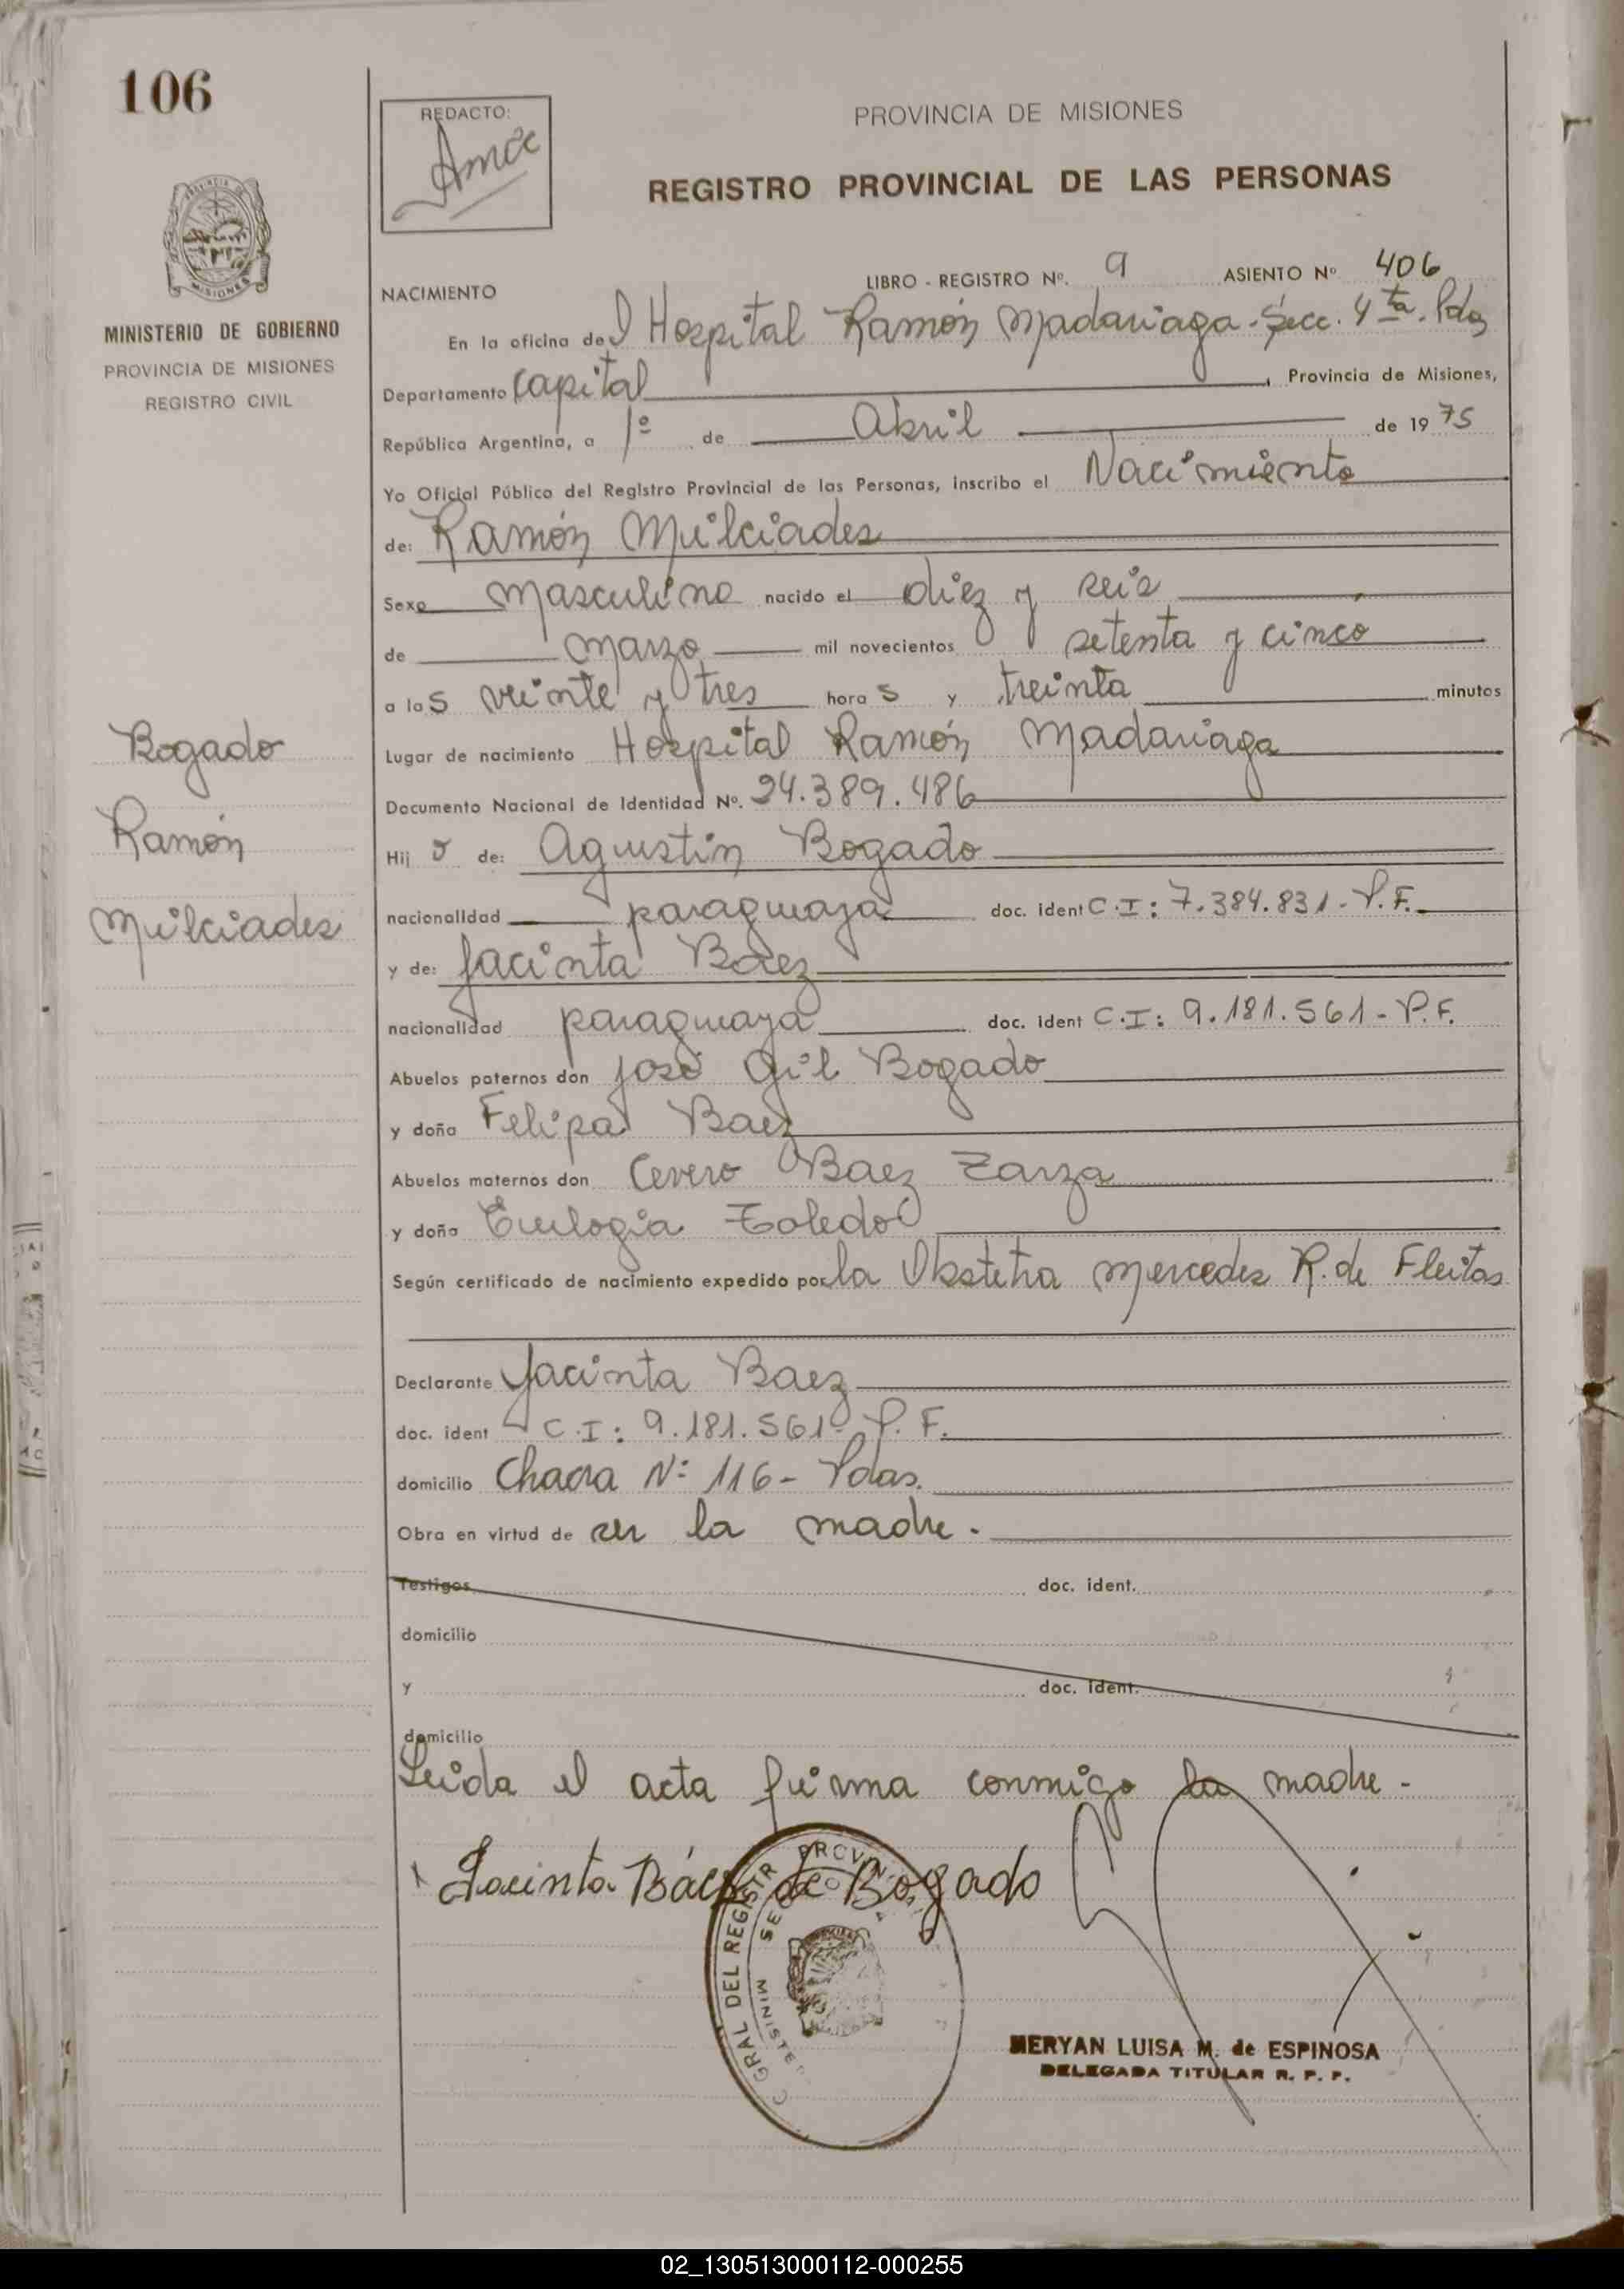 106
REDACTO:
PROVINCIA DE MISIONES
REGISTRO PROVINCIAL DE LAS PERSONAS
MISIONES
MINISTERIO DE GOBIERNO
PROVINCIA DE MISIONES
REGISTRO CIVIL
NACIMIENTO
LIBRO - REGISTRO Nº. 9 ASIENTO Nº 406
En la oficina del Hospital Ramón Madariaga - Secc. 4ta. Pdas
Departamento Capital, Provincia de Misiones,
República Argentina, a 1º de Abril de 1975
Yo Oficial Público del Registro Provincial de las Personas, inscribo el Nacimiento
de: Ramón Milciades
Sexo masculino nacido el diez y seis
de marzo mil novecientos setenta y cinco
a las veinte y tres horas y treinta minutos
Lugar de nacimiento Hospital Ramón Madariaga
Documento Nacional de Identidad Nº. 24.389.486
Hijo de: Agustín Bogado
nacionalidad paraguaya doc. ident C.I: 7.384.831 - P.F.
y de: Jacinta Baez
nacionalidad paraguaya doc. ident C.I: 9.181.561 - P.F.
Abuelos paternos don José Gil Bogado
y doña Felipa Baez
Abuelos maternos don Cevero Baez Zarza
y doña Eulogia Toledo
Según certificado de nacimiento expedido por la Obstetra Mercedes R. de Fleitas
Declarante Jacinta Baez
doc. ident C.I: 9.181.561 - P.F.
domicilio Chacra Nº 116 - Pdas.
Obra en virtud de ser la madre.
Testigos doc. ident.
domicilio
y doc. ident.
domicilio
Leida el acta firma conmigo la madre -
Jacinta Báez de Bogado
Bogado
Ramón
Milciades
GRAL DEL REGISTR PROVIN
MERYAN LUISA M. de ESPINOSA
DELEGADA TITULAR R. P. P.
02_130513000112-000255